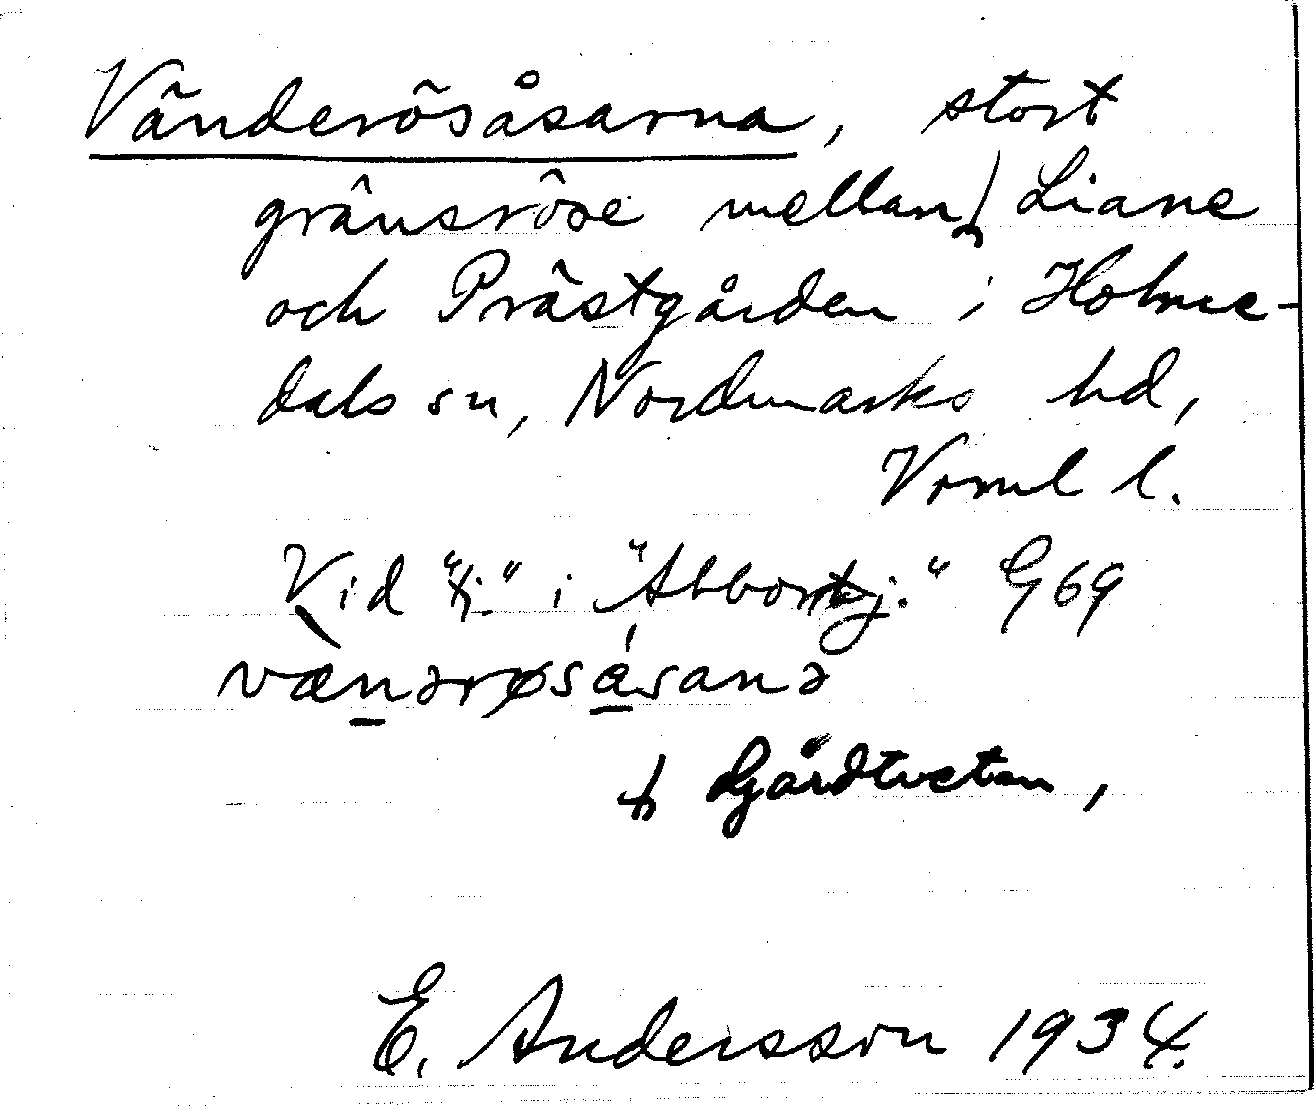 Vänderösåsarna, stort
gränsröse mellan Liane
och Prästgården i Holme-
dals sn, Nordmarks hd,
Vrml l.
Vid "tj." i "Abbortj." G69
vænərøsåsanə
Gjårdtveten,
E. Andersson 1934.